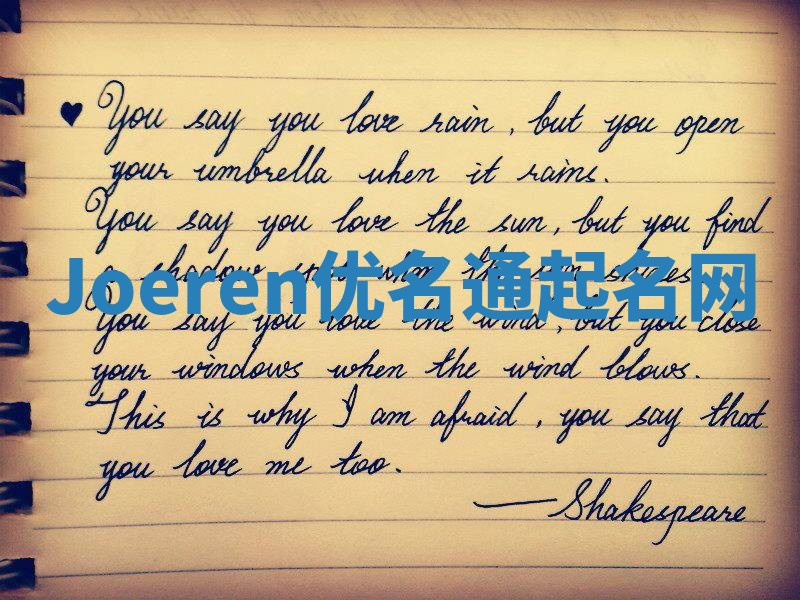 ♥ You say you love rain, but you open
your umbrella when it rains.
You say you love the sun, but you find
a shadow spot when the sun shines.
Joeren优名通起名网
You say you love the wind, but you close
your windows when the wind blows.
This is why I am afraid, you say that
you love me too.
—Shakespeare